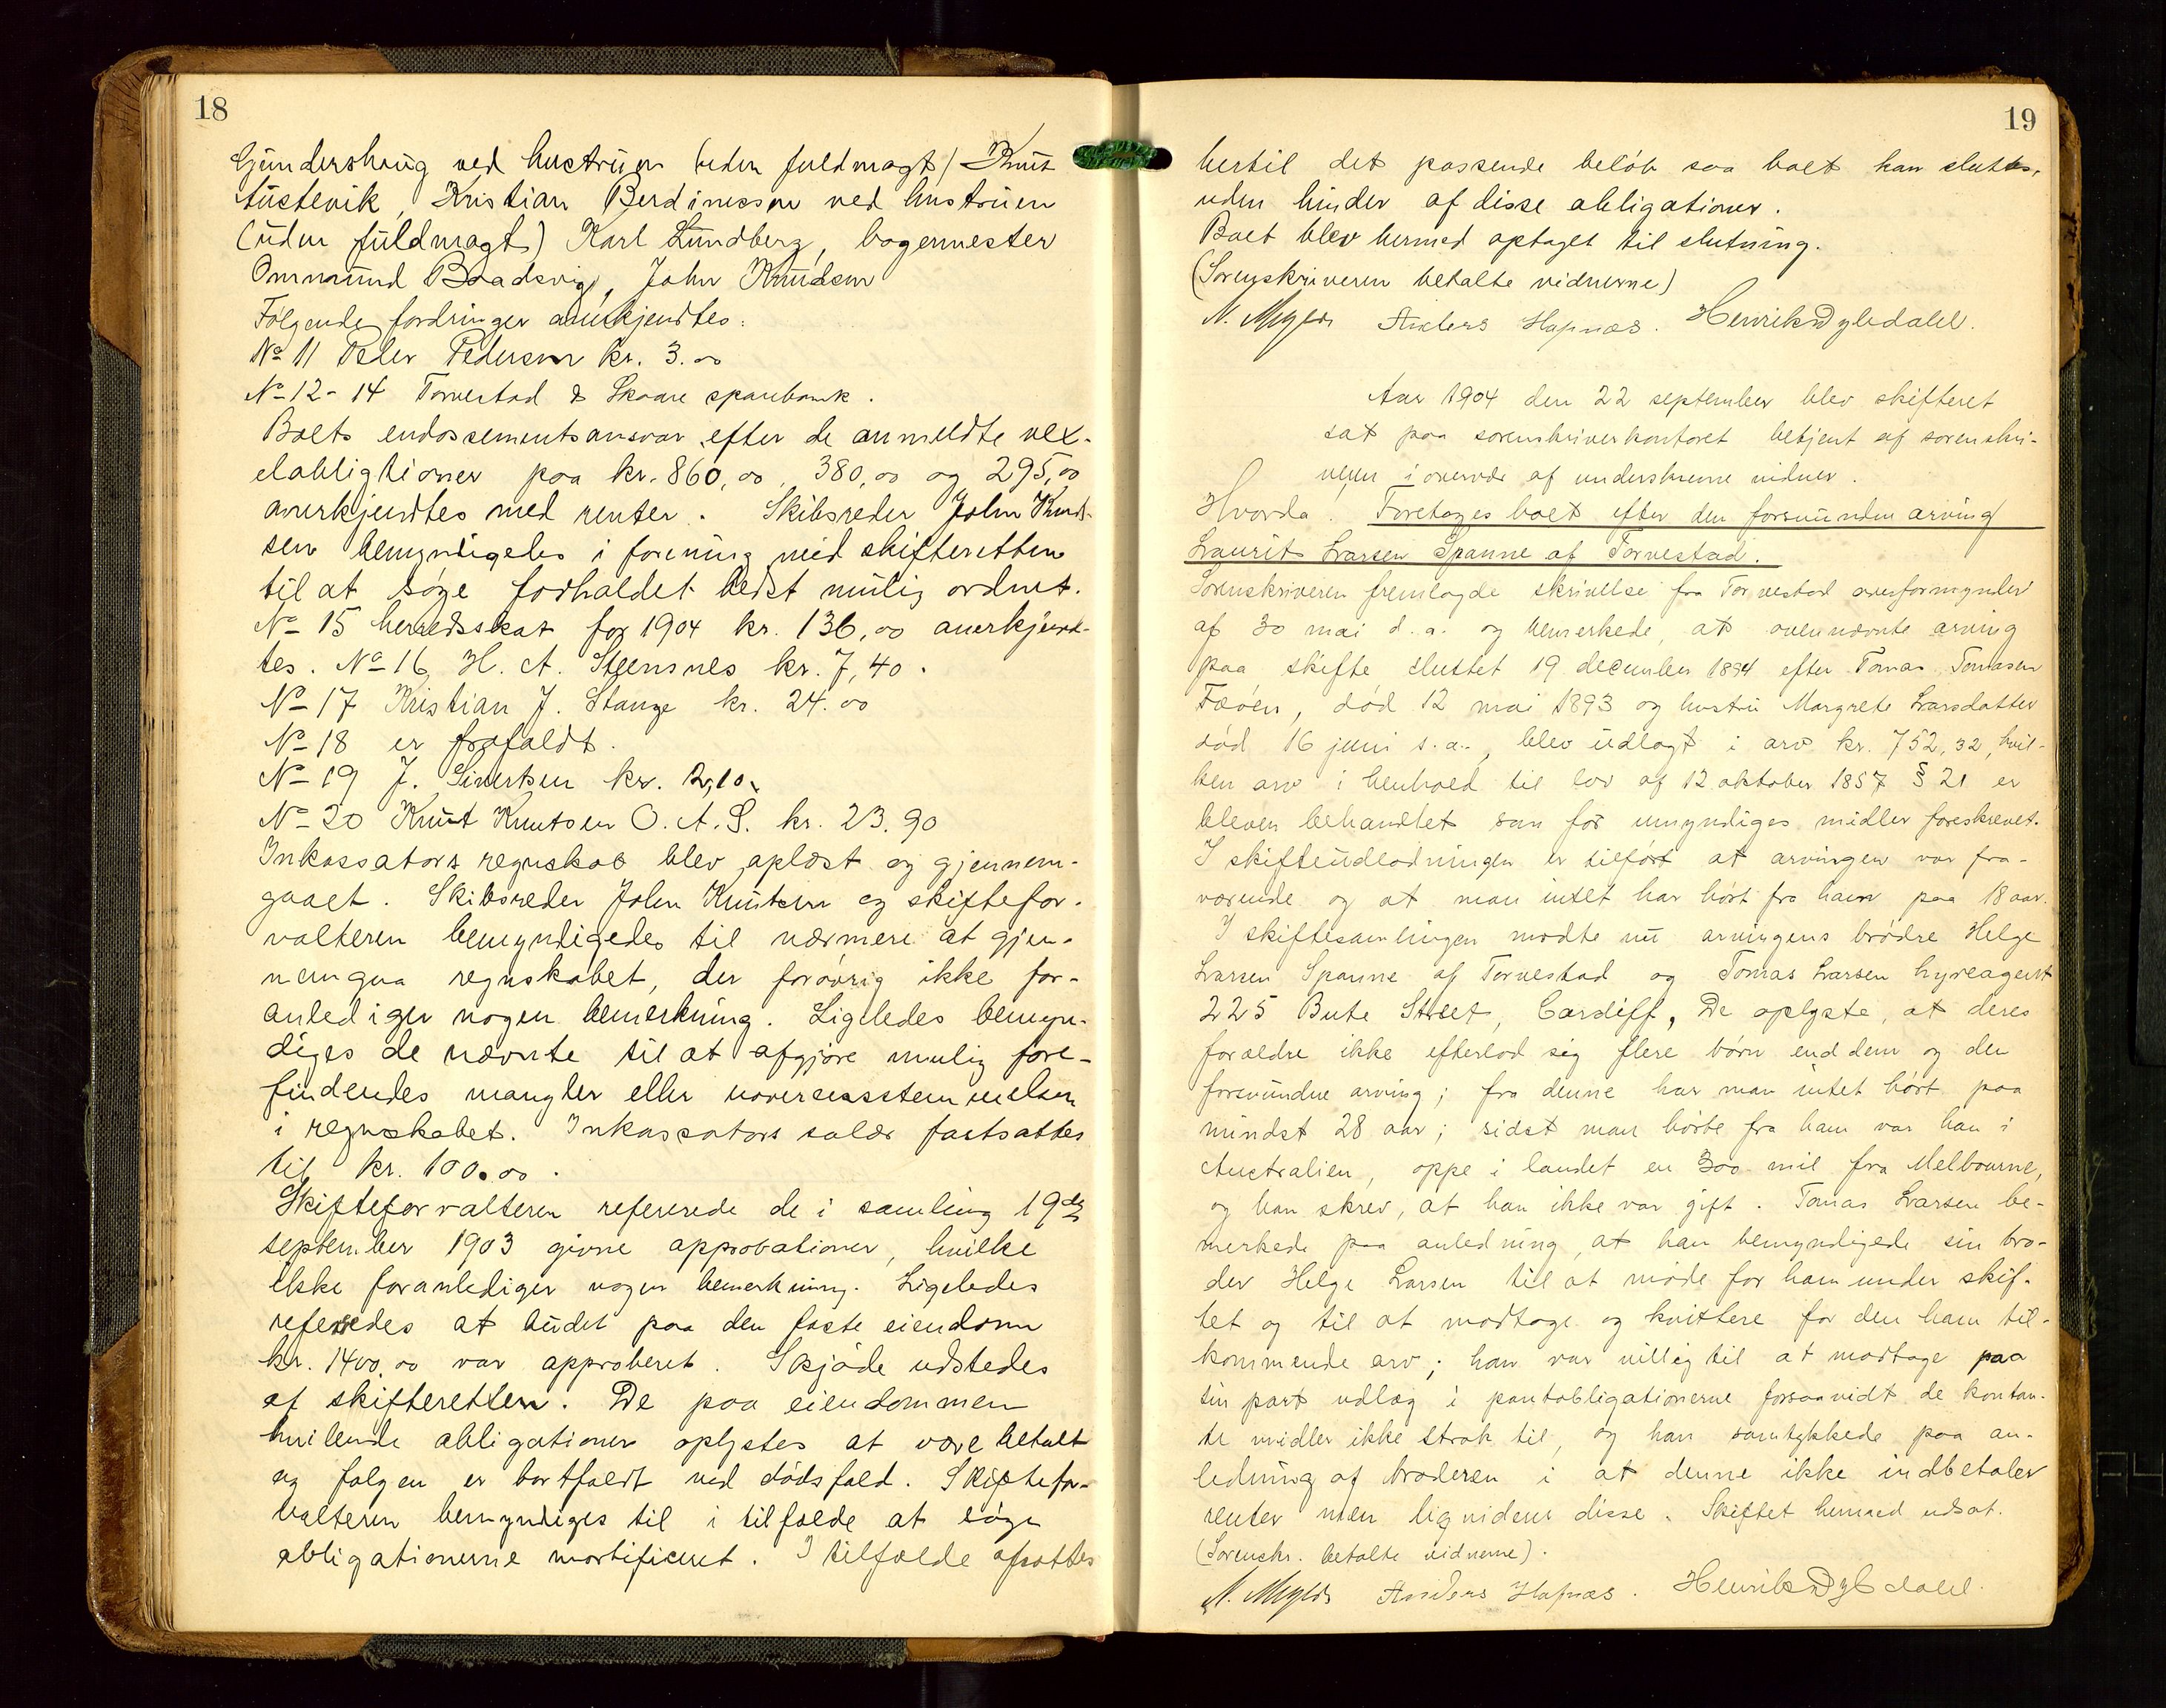 18
Gundershaug ved hustruen (uden fuldmagt) Knut
Tustevik, Kristian Berdinessen ved hustruen
(uden fuldmagt) Karl Lundberg, bogermester
Ommund Baadsvig, John Knudsen
Følgende fordringer anerkjendtes:
No 11 Peder Pedersen kr. 3.00
No 12-14 Torvestad & Skaare sparebank.
Boets endossementsansvar efter de anmeldte vex-
elobligtioner paa kr. 860,00, 380,00 og 295,00
anerkjendtes med renter. Skibsreder John Knud-
sen bemyndigedes i forening med skifteretten
til at søge forholdet bedst mulig ordnet.
No 15 herredsskat for 1904 kr. 136,00 anerkjend-
tes. No 16 H. A. Steensnes kr. 7,40.
No 17 Kristian J. Stange kr. 24.00
No 18 er frafaldt.
No 19 J. Sivertsen kr. 2,10.
No 20 Knut Knutsen O.A.S. kr. 23.90
Inkassators regnskab blev oplæst og gjennem-
gaaet. Skibsreder John Knutsen og skiftefor-
valteren bemyndigedes til nærmere at gjen-
nemgaa regnskabet, der forøvrig ikke for-
anlediger nogen bemerkning. Ligeledes bemyn-
diges de nævnte til at afgjøre mulig fore-
findendes mangler eller uoverensstemmelser
i regnskabet. Inkassators salær fastsattes
til kr. 100.00.
Skifteforvalteren refererede de i samling 19de
september 1903 givne approbationer, hvilke
ikke foranlediger nogen bemerkning. Ligeledes
referedes at budet paa den faste eiendom
kr. 1400.00 var approberet. Skjøde udstedes
af skifteretten. De paa eiendommen
hvilende obligationer oplystes at være betalt
og følgen er bortfaldt ved dødsfald. Skiftefor-
valteren bemyndiges til i tilfælde at søge
obligationerne mortificeret. I tilfælde afsattes
19
hertil det passende beløb saa boet kan sluttes,
uden hinder af disse obligationer.
Boet blev hermed optaget til slutning.
(Sorenskriveren betalte vidnerne)
Anders Hapnæs. Henrik Dybdahl.
Aar 1904 den 22 september blev skifteret
sat paa sorenskriverkontoret betjent af sorenskri-
veren i overvær af underskrevne vidner.
Hvorda: Foretoges boet efter den forsvundne arving
Laurits Larsen Spanne af Torvestad.
Sorenskriveren fremlagde skrivelse fra Torvestad overformynderi
af 30 mai d.a. og bemerkede, at ovennævnte arving
paa skifte sluttet 19 december 1894 efter Tomas Tomasen
Fæøen, død 12 mai 1893 og hustru Margrete Larsdatter
død 16 juni s.a., blev udlagt i arv kr. 752,32, hvil-
ken arv i henhold til lov af 12 oktober 1857 § 21 er
bleven behandlet som for umyndiges midler foreskrevet.
I skifteudlodningen er tilført at arvingen var fra-
værende og at man intet har hørt fra ham paa 18 aar.
I skiftesamlingen mødte nu arvingens brødre Helge
Larsen Spanne af Torvestad og Tomas Larsen hyreagent
225 Bute Street, Cardiff, De oplyste, at deres
forældre ikke efterlod sig flere børn end dem og den
forsvundne arving; fra denne har man intet hørt paa
mindst 28 aar; sidst man hørte fra ham var han i
Australien, oppe i landet en 300 mil fra Melbourne,
og han skrev, at han ikke var gift. Tomas Larsen be-
merkede paa anledning, at han bemyndigede sin bro-
der Helge Larsen til at møde for ham under skif-
tet og til at modtage og kvittere for den ham til-
kommende arv; han var villig til at modtage paa
sin part udlæg i pantobligationerne forsaavidt de kontan-
te midler ikke strak til, og han samtykkede paa an-
ledning af broderen i at denne ikke indbetaler
renter men ligviderer disse. Skiftet hermed udsat.
(Sorenskr. betalte vidnerne).
Anders Hapnæs. Henrik Dybdahl.